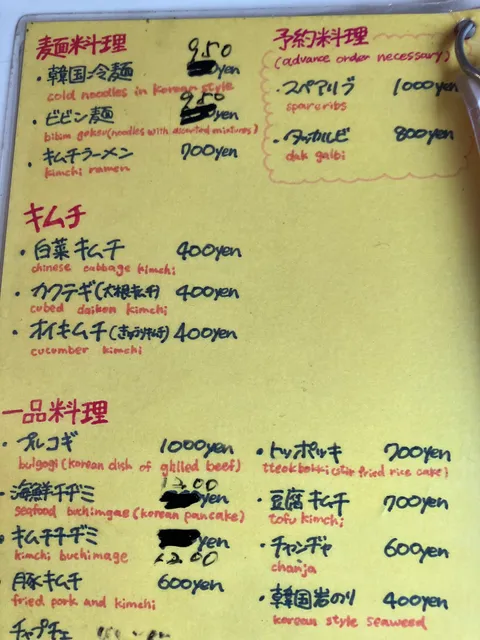 麺料理
950
・韓国冷麺 yen
cold noodles in korean style
950
・ビビン麺 yen
bibim guksu(noodles with assorted mixtures)
・キムチラーメン 700yen
kimchi ramen
予約料理
(advance order necessary)
・スペアリブ 1000yen
spareribs
・タッカルビ 800yen
dak galbi
キムチ
・白菜キムチ 400yen
chinese cabbage kimchi
・カクテギ(大根キムチ) 400yen
cubed daikon kimchi
・オイキムチ(きゅうりキムチ) 400yen
cucumber kimchi
一品料理
・プルコギ 1000yen
bulgogi(korean dish of grilled beef)
1200
・海鮮チヂミ yen
seafood buchimgae(korean pancake)
・キムチチヂミ yen
kimchi buchimage 1200
・豚キムチ 600yen
fried pork and kimchi
チャプチェ
・トッポッキ 700yen
tteokbokki(stir fried rice cake)
・豆腐キムチ 700yen
tofu kimchi
・チャンヂャ 600yen
chanja
・韓国岩のり 400yen
korean style seaweed